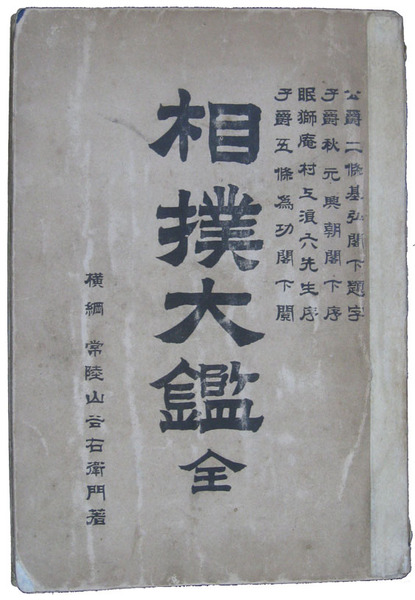 公爵二條基弘閣下題字
子爵秋元興朝閣下序
眠獅庵村上濵六先生序
子爵五條為功閣下閲
相撲大鑑
全
横綱 常陸山谷右衛門著